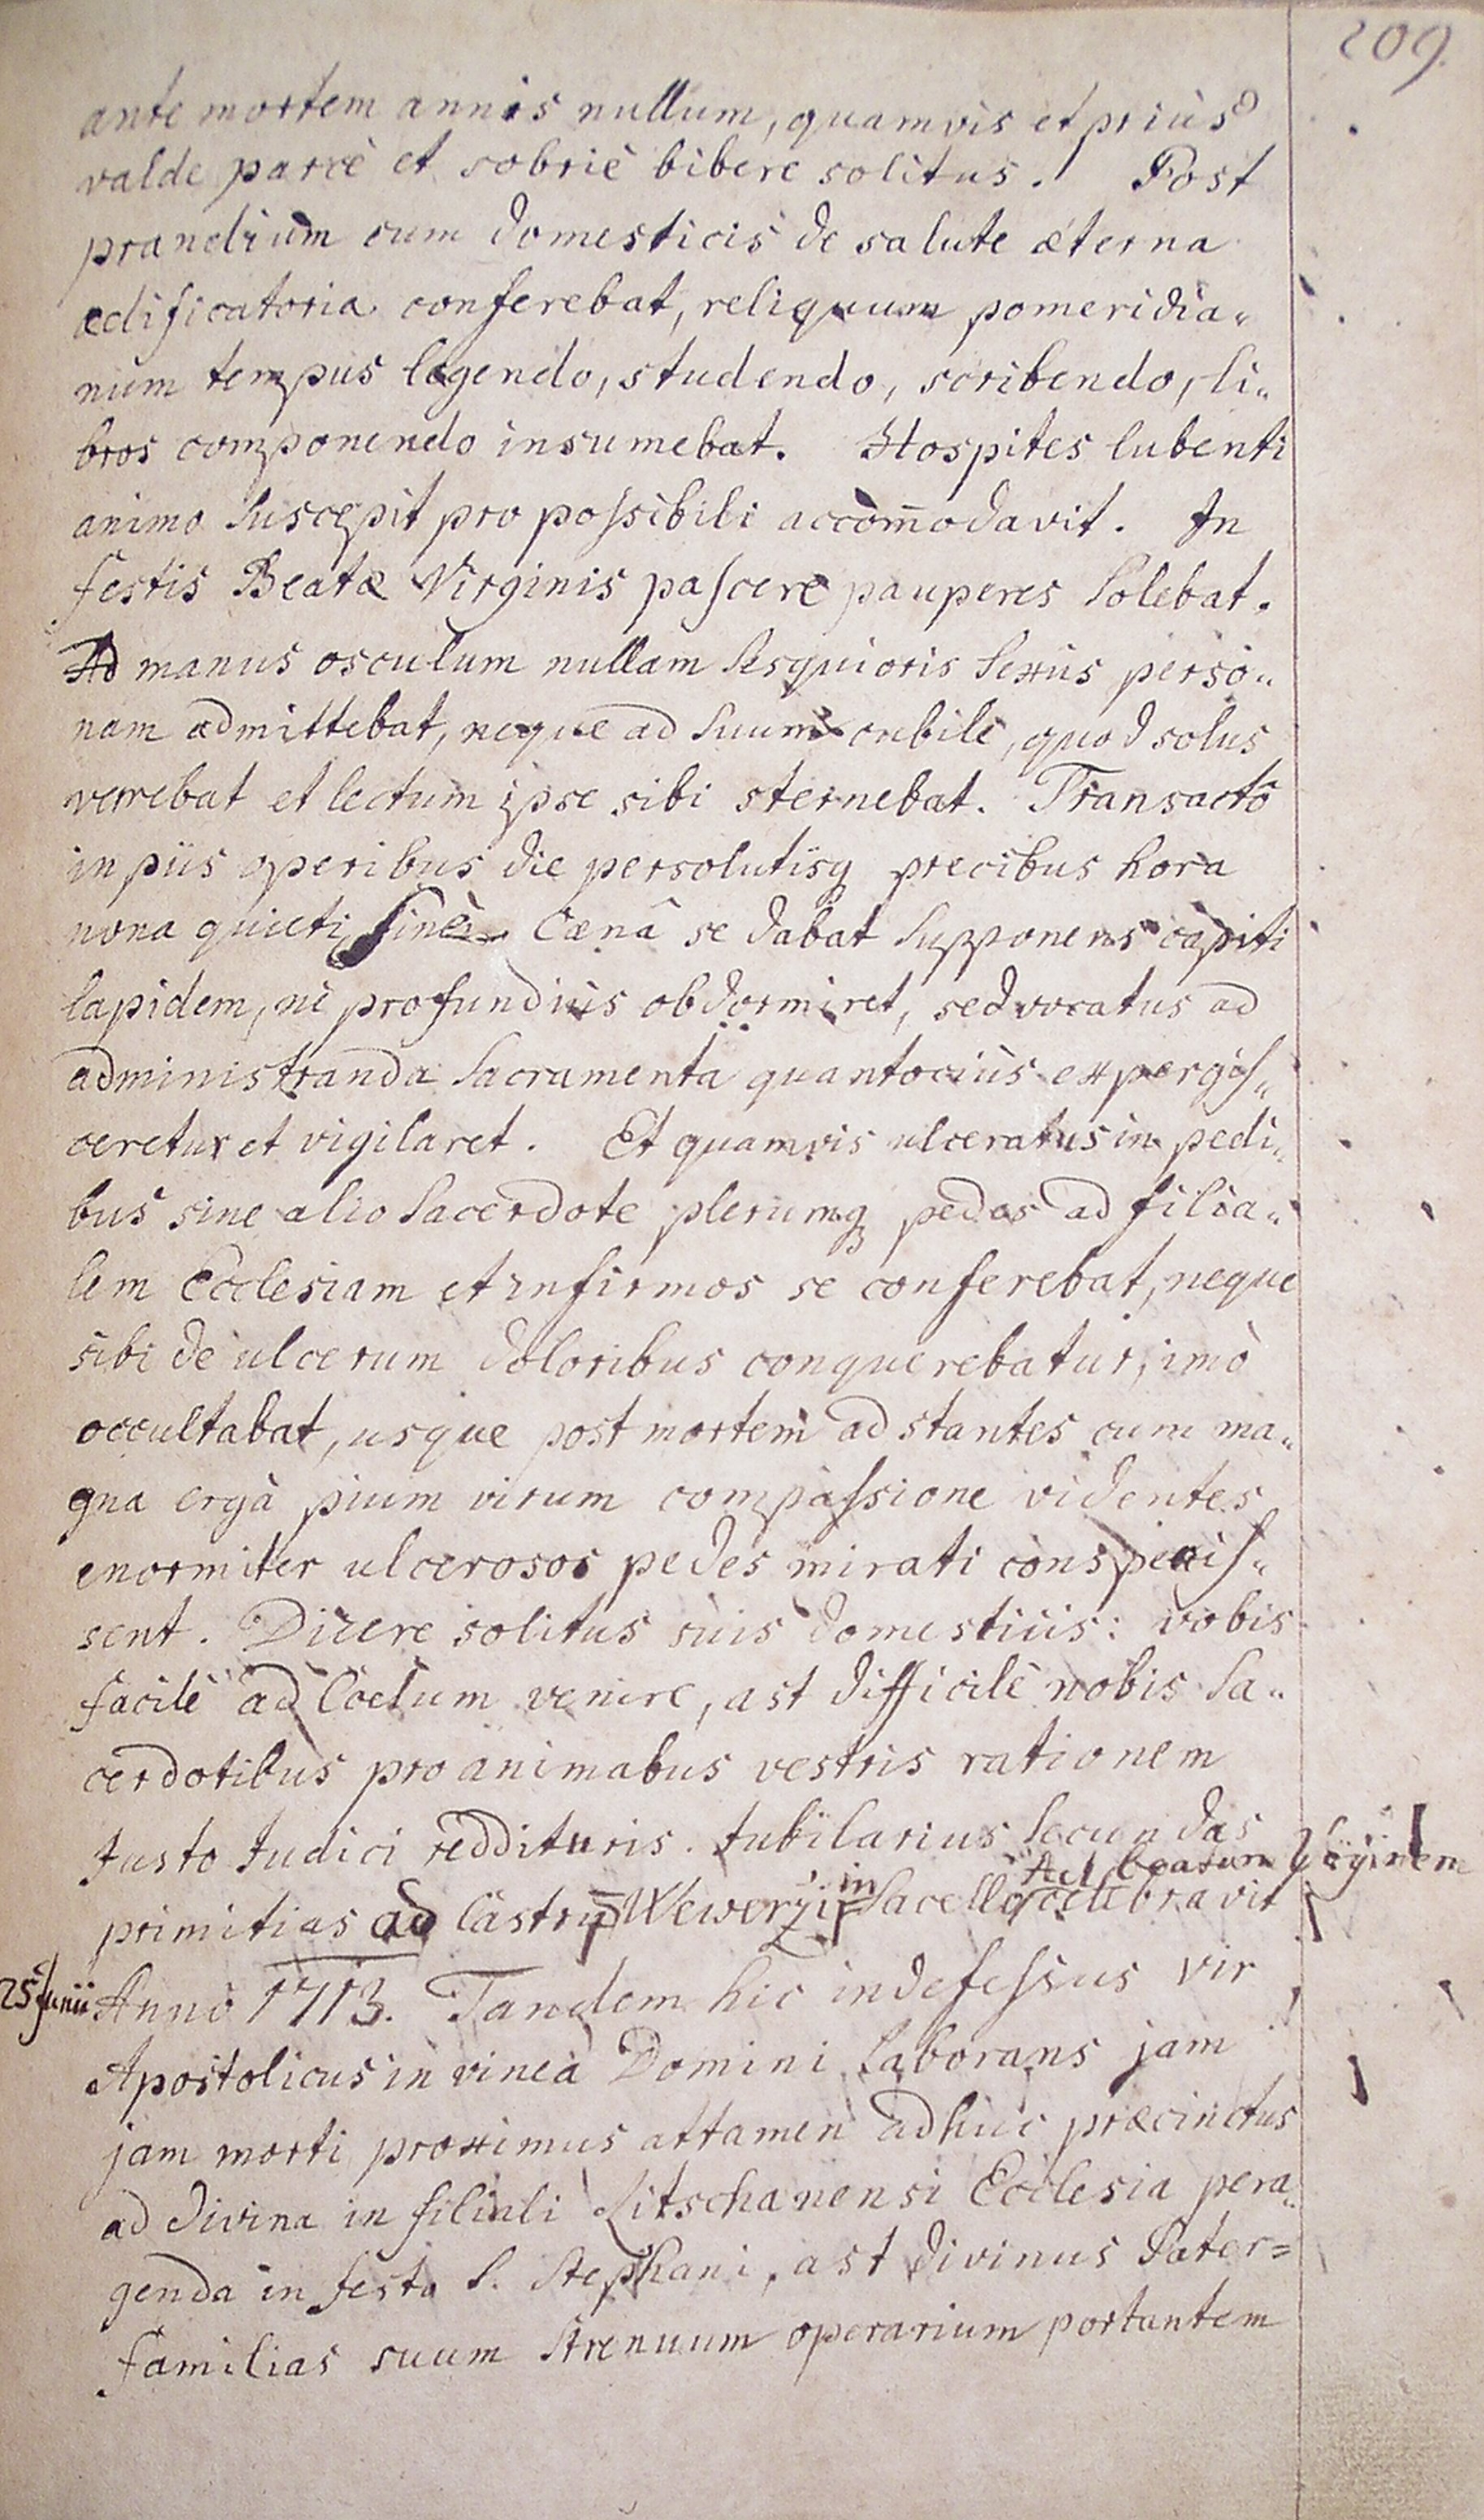 209.
ante mortem annis nullum, quamvis et priùs
valde parcè et sobriè bibere solitus. Post
prandium cum domesticis de salute æterna
ædificatoria conferebat, reliquum pomeridia„
num tempus legendo, studendo, scribendo, li„
bros componendo insumebat. Hospites lubenti
animo suscepit pro poſsibili accom̄odavit. In
festis Beatæ Virginis paſcere pauperes solebat.
Ad manus osculum nullam sesquioris sexûs perso„
nam admittebat, neque ad suum cubile, quod solus
verrebat et lectum ipse sibi sternebat. Transactô
in piis operibus die persolutisq precibus hora
nona quieti sine Cænâ se dabat supponens capiti
lapidem, nè profundiùs obdormiret, sed vocatus ad
administranda Sacramenta quantociùs expergiſ„
ceretur et vigilaret. Et quamvis ulceratus in pedi„
bus sine alio Sacerdote plerumq pedes ad filia„
lem Ecclesiam et infirmos se conferebat, neque
sibi de ulcerum doloribus conquerebatur, imò
occultabat, usque post mortem adstantes cum ma„
gna ergà pium virum compaſsione videntes
enormiter ulcerosos pedes mirati conspexiſ„
sent. Dicere solitus suis domesticis: vobis
facilè ad Coelum venire, ast difficilè nobis Sa„
cerdotibus pro animabus vestris rationem
Justo Judici reddituris. Jubilarius secundas
Ad beatam Virginem
primitias ad Castrum Wewerzi in Sacello celebravit
25 Junii Anno 1713. Tandem hic indefeſsus vir
Apostolicus in vinea Domini laborans jam
jam morti proximus attamen adhuc præcinctus
ad divina in filiali Litschanensi Ecclesia pera„
genda in festo S. Stephani, ast divinus Pater=
familias suum strenuum operarium portantem